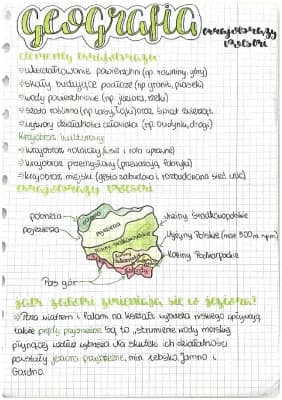 Geografia
krajobrazy Polski
elementy krajobrazu:
ukształtowanie powierzchni (np. równiny, góry)
skały budujące podłoże (np. granit, piasek)
wody powierzchniowe (np. jeziora, rzeki)
szata roślinna (np. lasy, łąki) oraz świat zwierząt
wytwory działalności człowieka (np. budynki, drogi)
Krajobraz kulturowy:
krajobraz rolniczy (wsie i pola uprawne)
krajobraz przemysłowy (fabryki)
krajobraz miejski (gęsta zabudowa i rozbudowana sieć ulic)
krajobrazy Polski
pobrzeża
pojezierza
Niziny Środkowopolskie
Wyżyny Polskie (max 500 m npm)
Kotliny Podkarpackie
Pas gór
jezioro?
Poza wiatrem i falami na kształt wybrzeża wpływają
także prądy przybrzeżne są to „strumienie wody morskiej
płynącej wzdłuż wybrzeża. Na skutek ich działalności
powstały jeziora przybrzeżne, m.in. Łebsko, Jamno i
Gardno.